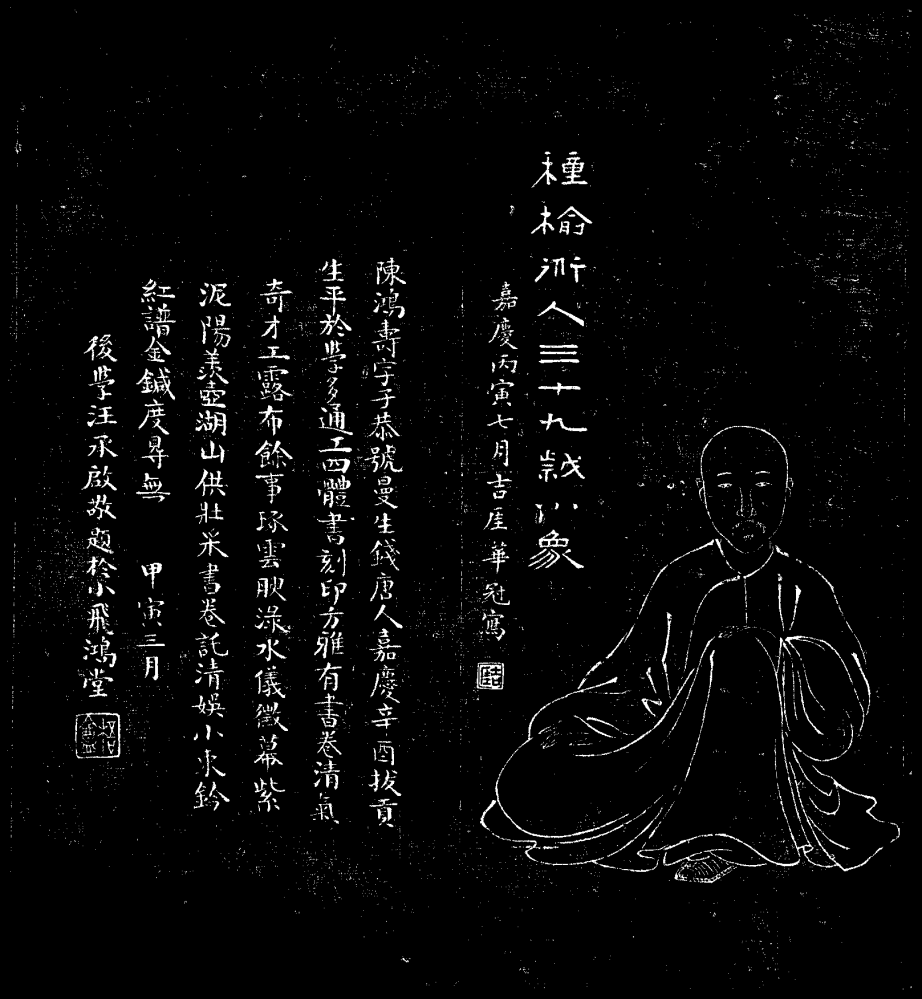 種榆仙人三十九歲小象
嘉慶丙寅七月吉厓華冠寫
陳鴻壽字子恭號曼生錢唐人嘉慶辛酉拔貢
生平於學多通工四體書刻印方雅有書卷清氣
奇才工露布餘事琢雲腴淥水儀徵幕紫
泥陽羨壺湖山供壯采書卷託清娛小東鈐
紅譜金鍼度尋無 甲寅三月
後學汪承啟敬題於小飛鴻堂